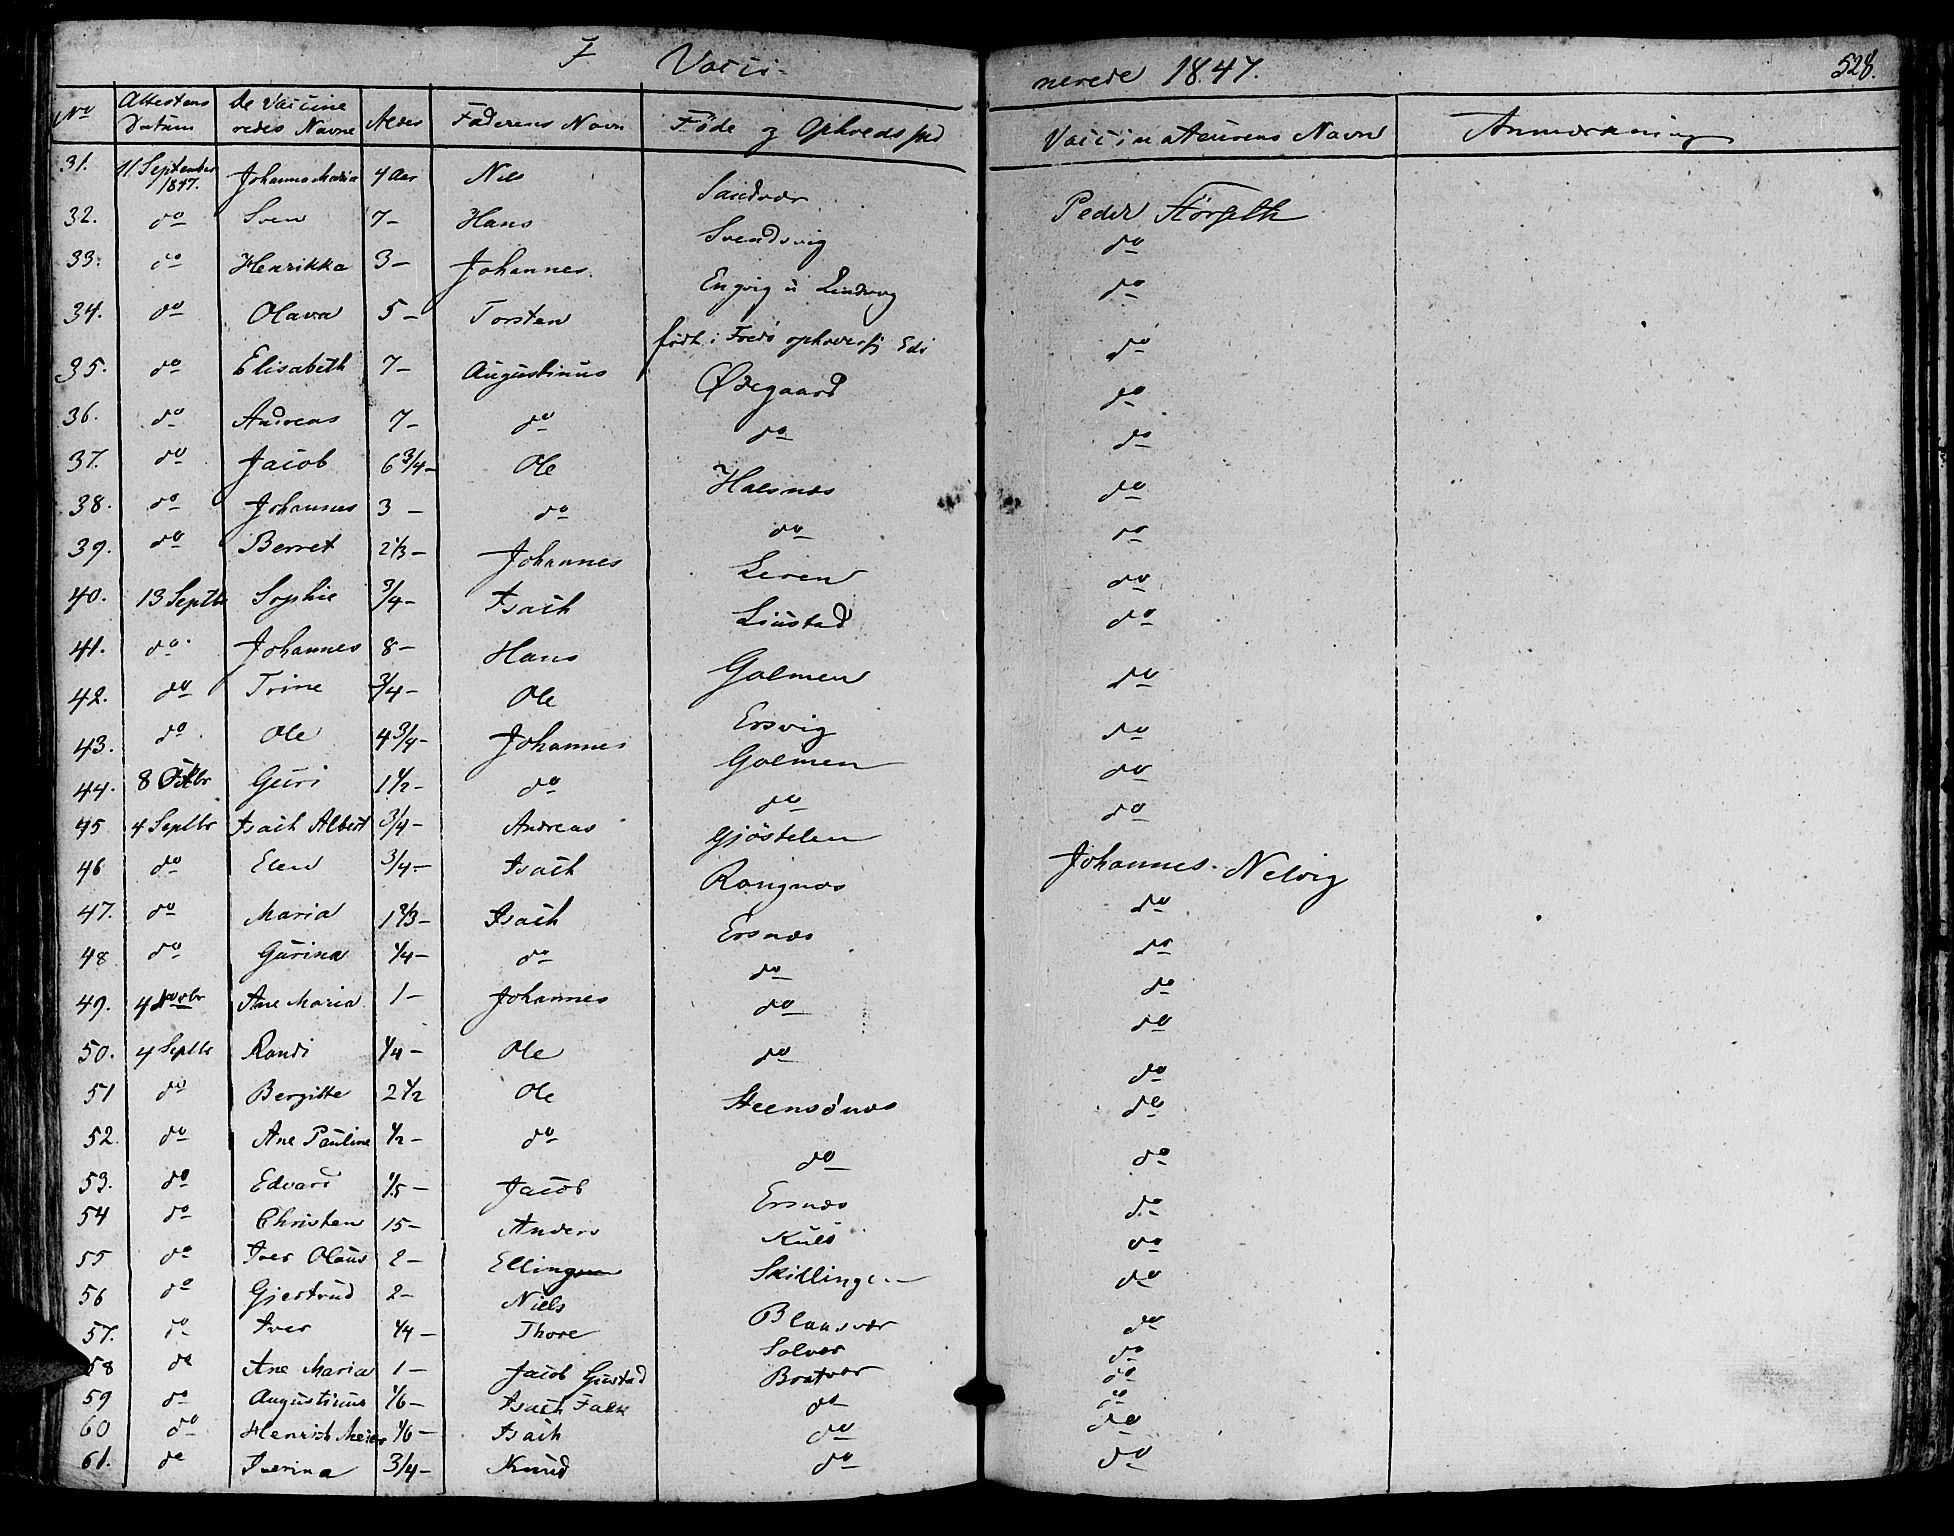 F Vacci- nerede 1847. 528.
No Attestens Datum De Vaccineredes Navne Alder Faderens Navn Føde og Opholdssted Vaccinateurens Navn Anmærkning
31. 11 September 1847. Johanna Maria 4 Aar Nils Sandvær Peder
32. do Sven 7- Hans Svendsvig do
33. do Henrikka 3- Johannes. Engvig do
34. do Olava 5- Torsten født i Fredø do
35. do Elisabeth 7- Augustinus Ødegaard do
36. do Andreas 7- do do do
37. do Jacob 6 3/4- Ole Halsnæs do
38. do Johannes 3- do do do
39. do Berret 2 1/3- Johannes Leren do
40. 13 Septbr Sophie 3/4- Isach Liustad do
41. do Johannes 8- Hans Golmen do
42. do Trine 3/4- Ole Ersvig do
43. do Ole 4 3/4- Johannes Golmen do
44. 8 Octbr Guri 1 1/2- do do do
45 4 Septbr Isach Albert 3/4- Andreas Gjøstelen Johannes. Nelvig
46 do Elen 3/4- Isach Rangnæs do
47. do Maria 1 2/3- Isach Ersnæs do
48 do Gurina 1/4- do do do
49. 4 Novbr Ane Maria 1- Johannes do do
50. 4 Septbr Randi 1/4- Ole do do
51 do Bergitte 2 1/2 Ole Steensønæs do
52. do Ane Pauline 1/2- do do do
53. do Edvard 1/5- Jacob Ersnæs do
54 do Christen 15- Anders Kulø do
55 do Iver Olaus 2- Elling Skillingen do
56 do Gjertrud 2- Niels Blaasvær do
57. do Iver 1/4- Thore Solvær do
58 do Ane Maria 1- Jacob Gustad Bratvær do
59 do Augustinus 1/6- Isach Falk do do
60 do Henrich Meier 1/6- Isach do do
61. do Iverina 3/4- Knud do do